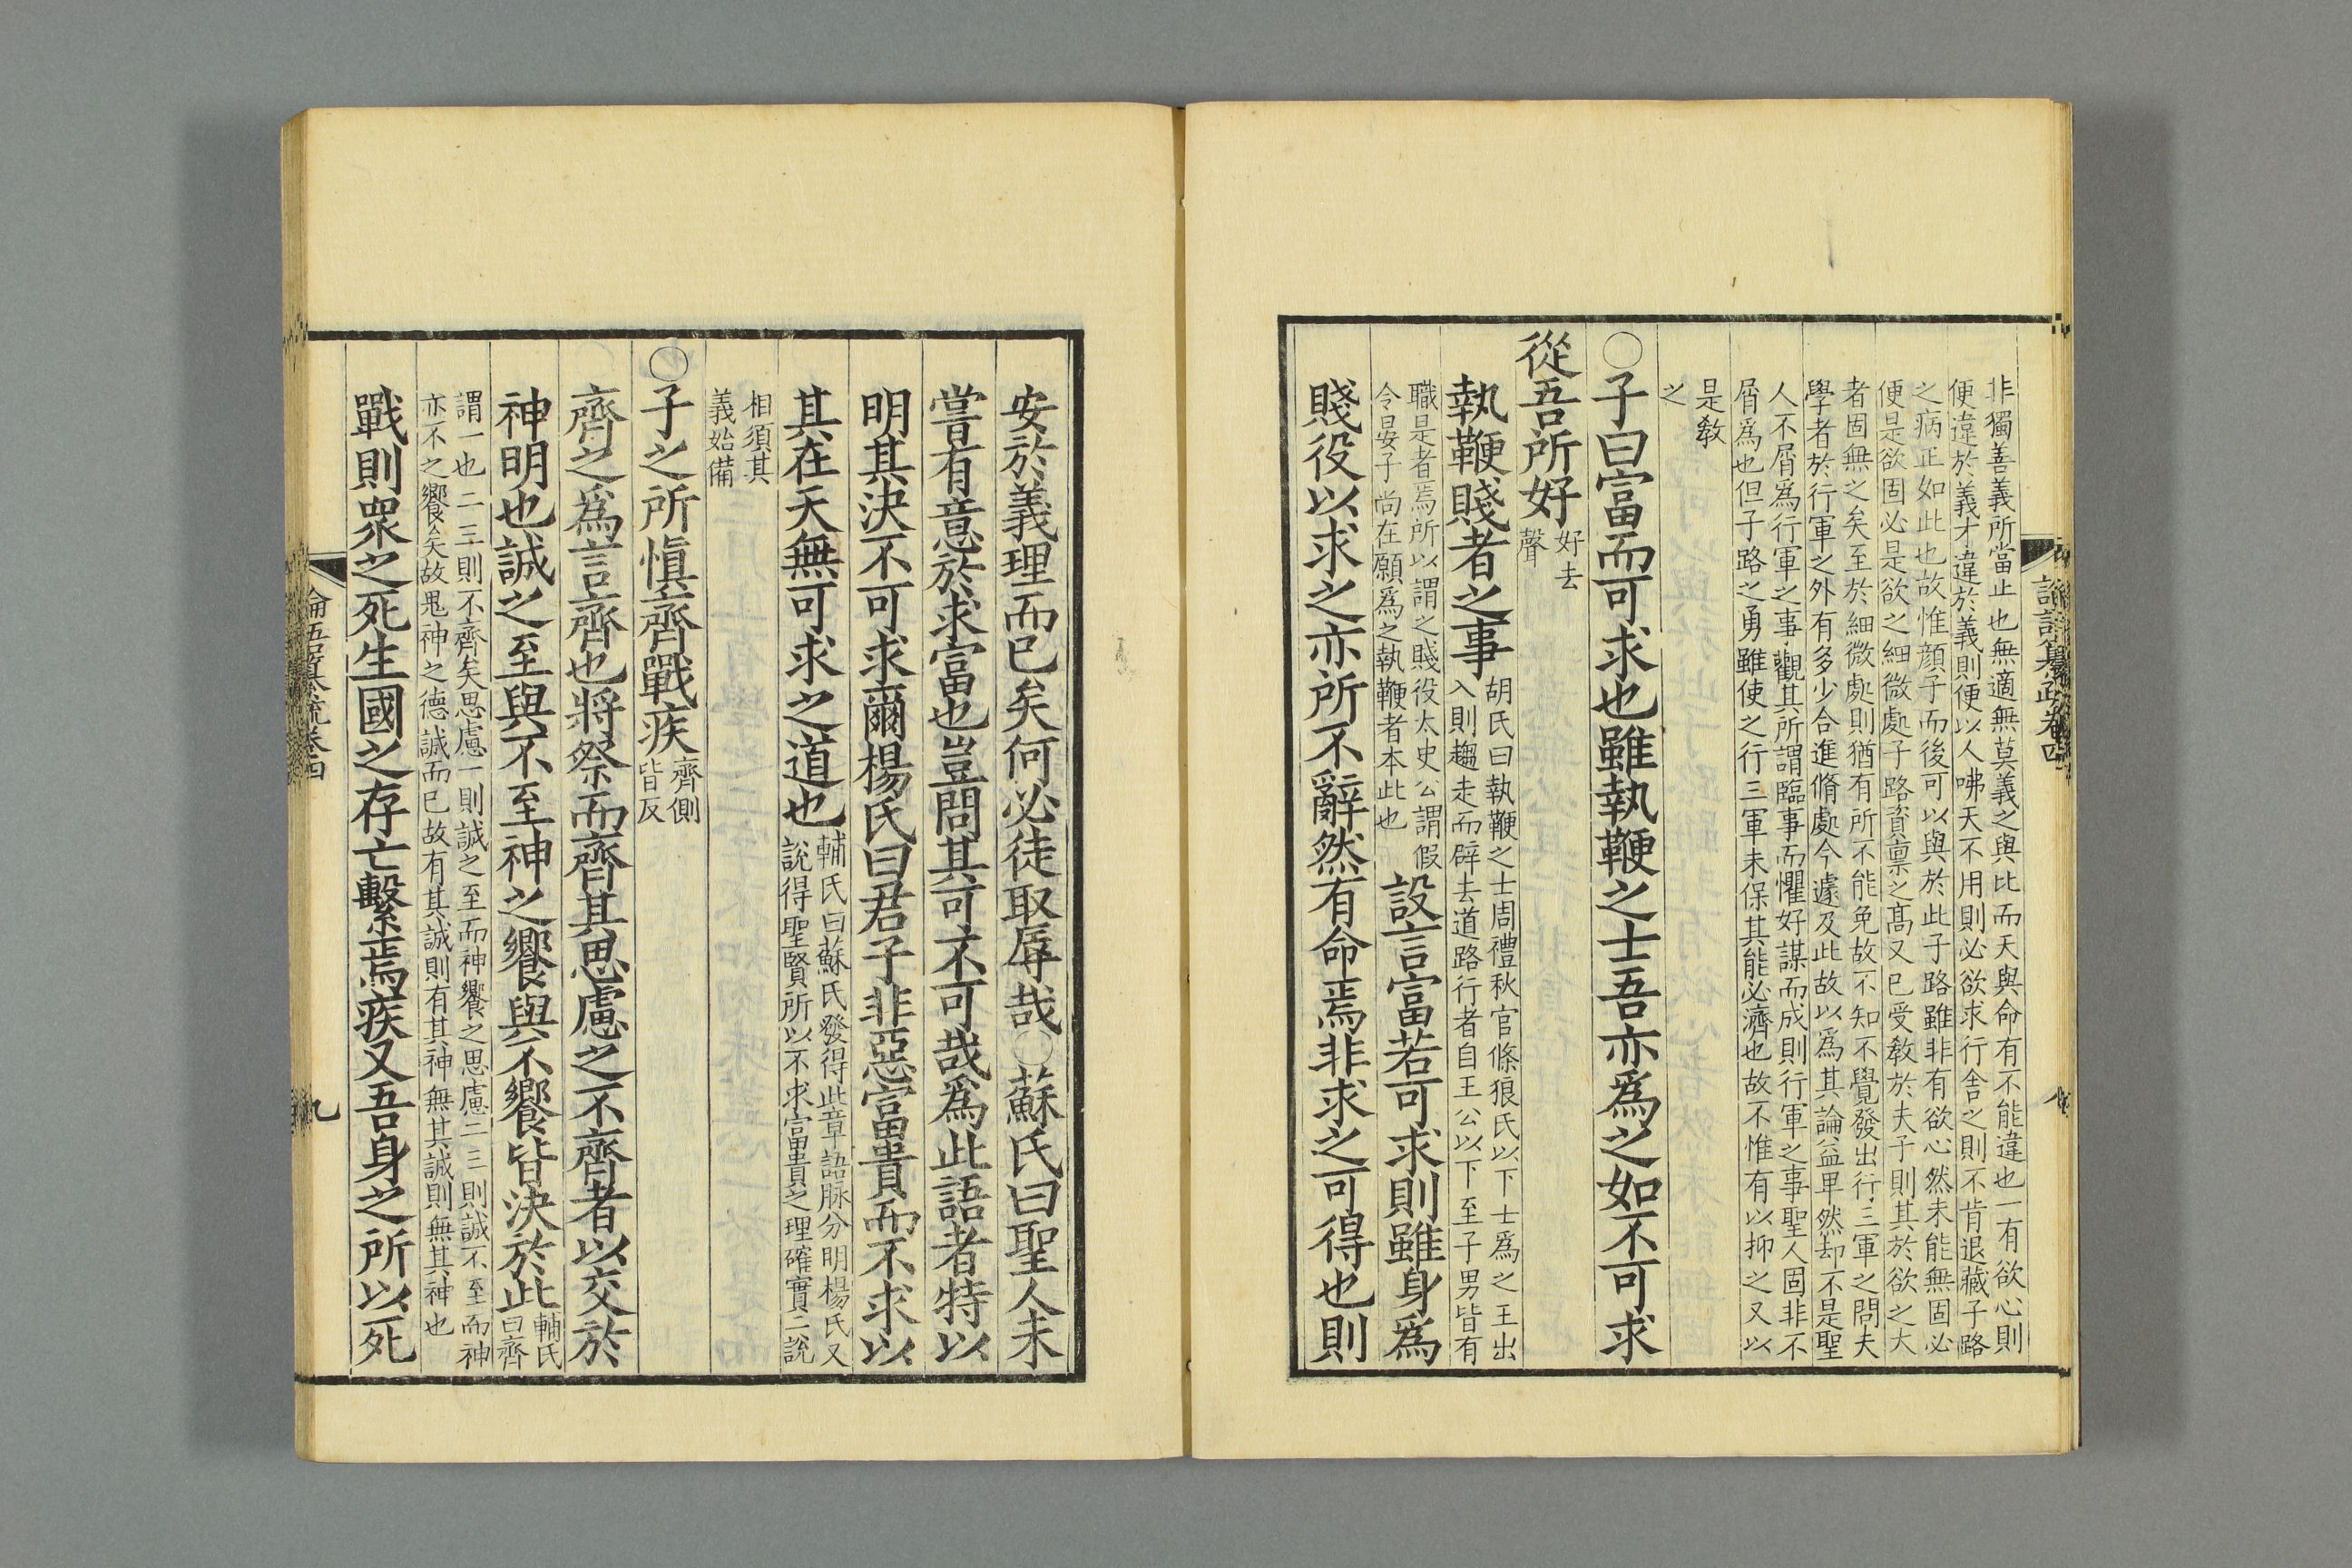 非獨善義所當止也無適無莫義之與比而天與命有不能違也一有欲心則
便違於義才違於義則便以人咈天不用則必欲求行舍之則不肯退藏子路
之病正如此也故惟顔子而後可以與於此子路雖非有欲心然未能無固必
便是欲固必是欲之細微處子路資禀之高又已受敎於夫子則其於欲之大
者固無之矣至於細微處則猶有所不能免故不知不覺發出行三軍之問夫
學者於行軍之外有多少合進脩處今遽及此故以爲其論益卑然却不是聖
人不屑爲行軍之事觀其所謂臨事而懼好謀而成則行軍之事聖人固非不
屑爲也但子路之勇雖使之行三軍未保其能必濟也故不惟有以抑之又以
是敎
之
○子曰富而可求也雖執鞭之士吾亦爲之如不可求
從吾所好
好去
聲
執鞭賤者之事
胡氏曰執鞭之士周禮秋官條狼氏以下士爲之王出
入則趨走而辟去道路行者自王公以下至子男皆有
職是者焉所以謂之賤役太史公謂假
令晏子尚在願爲之執鞭者本此也
設言富若可求則雖身爲
賤役以求之亦所不辭然有命焉非求之可得也則
安於義理而已矣何必徒取辱哉○蘇氏曰聖人未
嘗有意於求富也豈問其可不可哉爲此語者特以
明其決不可求爾楊氏曰君子非惡富貴而不求以
其在天無可求之道也
輔氏曰蘇氏發得此章語脉分明楊氏又
說得聖賢所以不求富貴之理確實二說
相須其
義始備
○子之所愼齊戰疾
齊側
皆反
齊之爲言齊也將祭而齊其思慮之不齊者以交於
神明也誠之至與不至神之饗與不饗皆決於此
輔氏
曰齊
謂一也二三則不齊矣思慮一則誠之至而神饗之思慮二三則誠不至而神
亦不之饗矣故鬼神之德誠而已故有其誠則有其神無其誠則無其神也
戰則衆之死生國之存亡繫焉疾又吾身之所以死
論語纂疏卷四
九